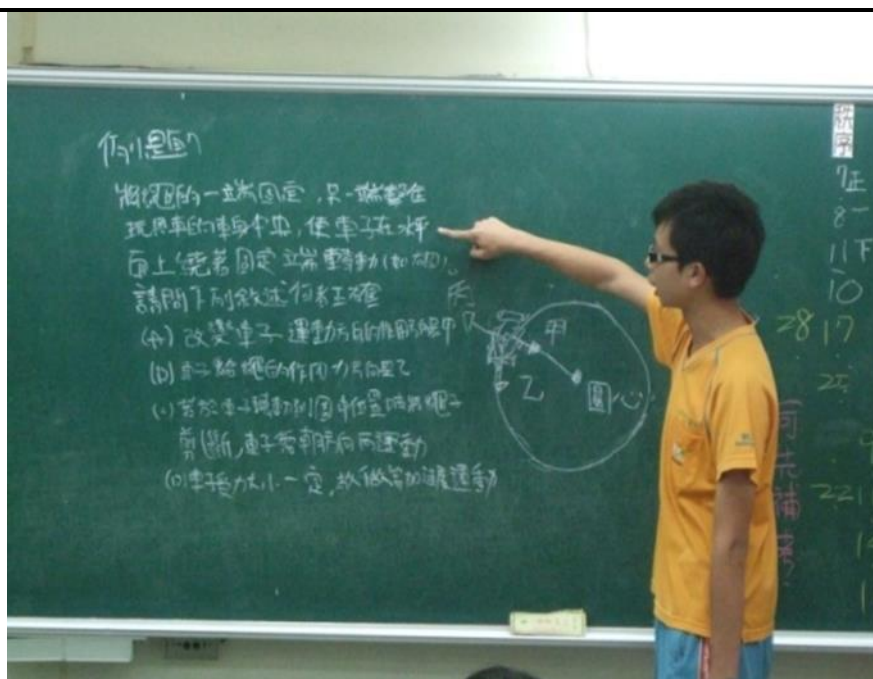 例題7
將繩的一端固定,另一端繫在
玩具車的車身中央,使車子在水平
面上繞著固定端轉動(如右圖)。
請問下列敘述何者正確
(A) 改變車子運動方向的作用力為甲
(B) 車子給繩的作用力方向是乙
(C) 若於車子運動到圖中位置時將繩子
剪斷,車子會朝方向丙運動
(D) 車子受力大小一定,故做等加速度運動
丙
甲
乙
圓心
秩序
7正
8一
11下
10
28 17
25
221
可先補考